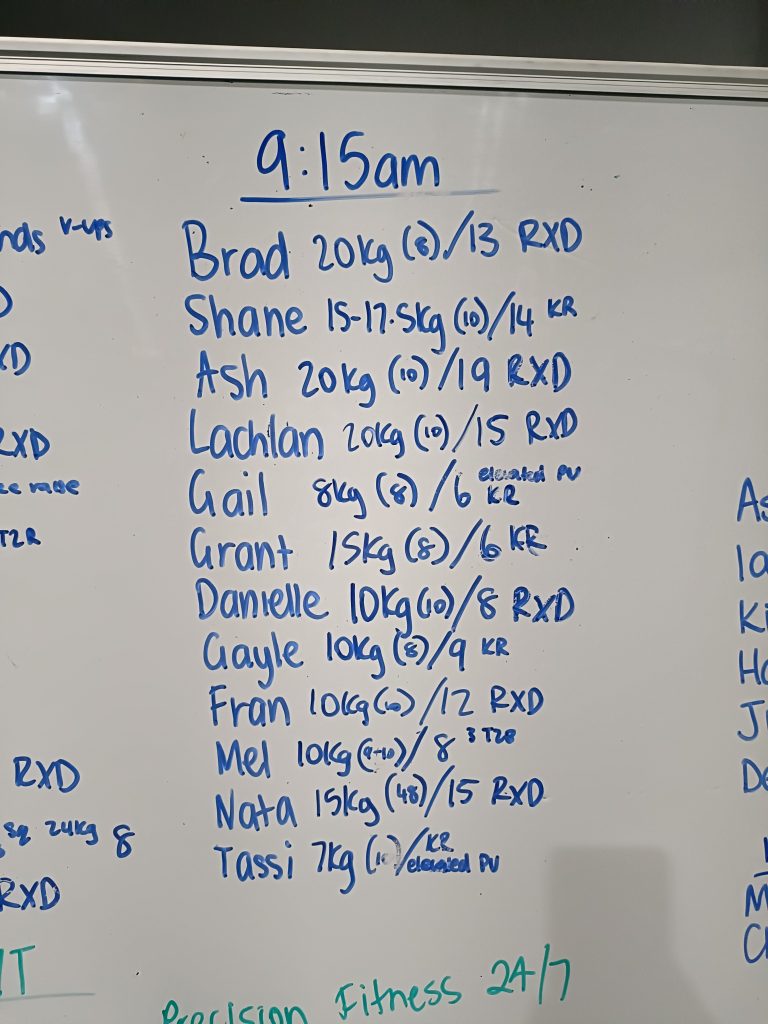 9:15am
Brad 20kg (8)/13 RXD
Shane 15-17.5kg (10)/14 KR
Ash 20kg (10)/19 RXD
Lachlan 20kg (10)/15 RXD
Gail 8kg (8)/6 elevated PU KR
Grant 15kg (8)/6 KR
Danielle 10kg (10)/8 RXD
Gayle 10kg (8)/9 KR
Fran 10kg (10)/12 RXD
Mel 10kg (9-10)/8 3 T2B
Nata 15kg (48)/15 RXD
Tassi 7kg (10)/KR elevated PU
Precision Fitness 24/7
nds V-ups
D
XD
RXD
T2R
RXD
sq 24kg 8
RXD
IT
As
Ia
Ki
Ha
Ju
De
M
Ch